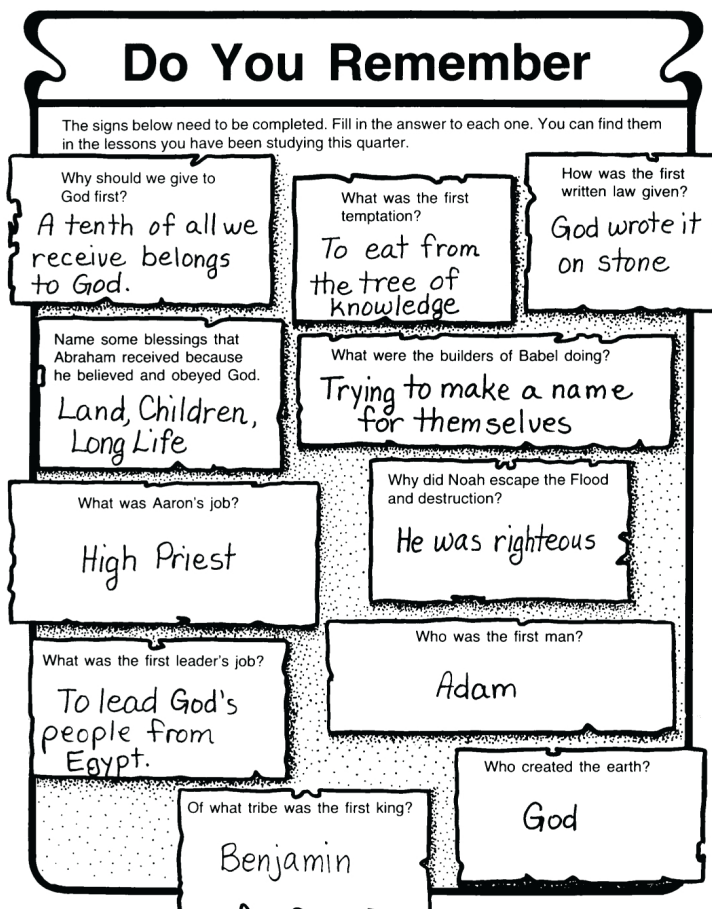 Do You Remember
The signs below need to be completed. Fill in the answer to each one. You can find them
in the lessons you have been studying this quarter.
Why should we give to
God first?
A tenth of all we
receive belongs
to God.
What was the first
temptation?
To eat from
the tree of
knowledge
How was the first
written law given?
God wrote it
on stone
Name some blessings that
Abraham received because
he believed and obeyed God.
Land, Children,
Long Life
What were the builders of Babel doing?
Trying to make a name
for themselves
What was Aaron's job?
High Priest
Why did Noah escape the Flood
and destruction?
He was righteous
What was the first leader's job?
To lead God's
people from
Egypt.
Who was the first man?
Adam
Who created the earth?
God
Of what tribe was the first king?
Benjamin